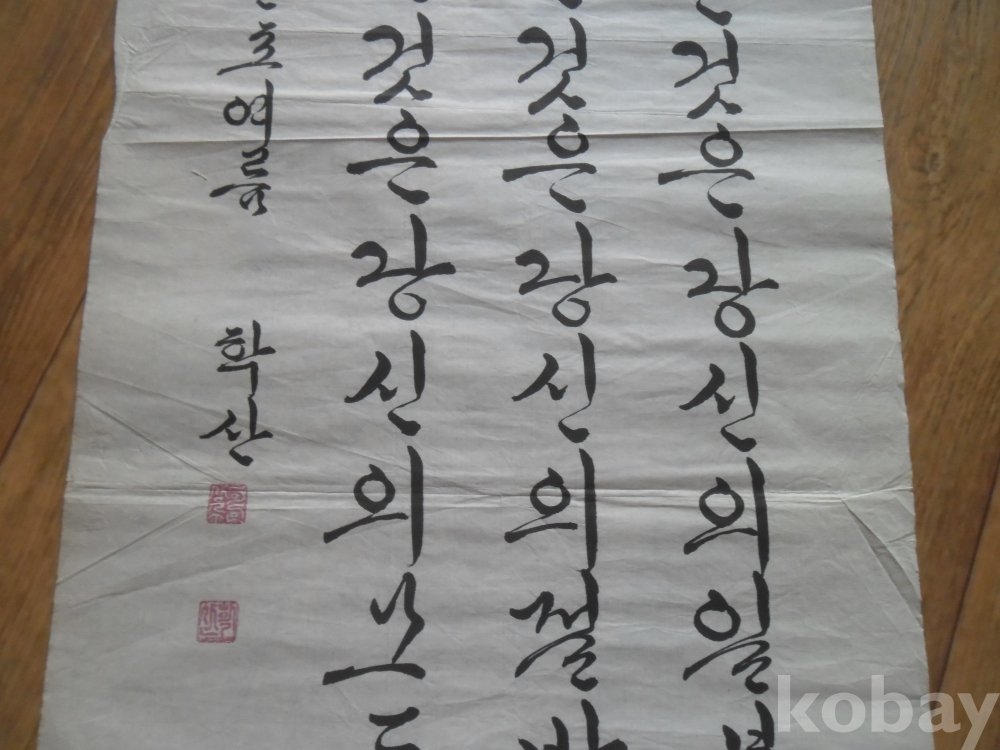 것은당신의일
것은당신의절반
것은당신의모
초여름 학산
kobay